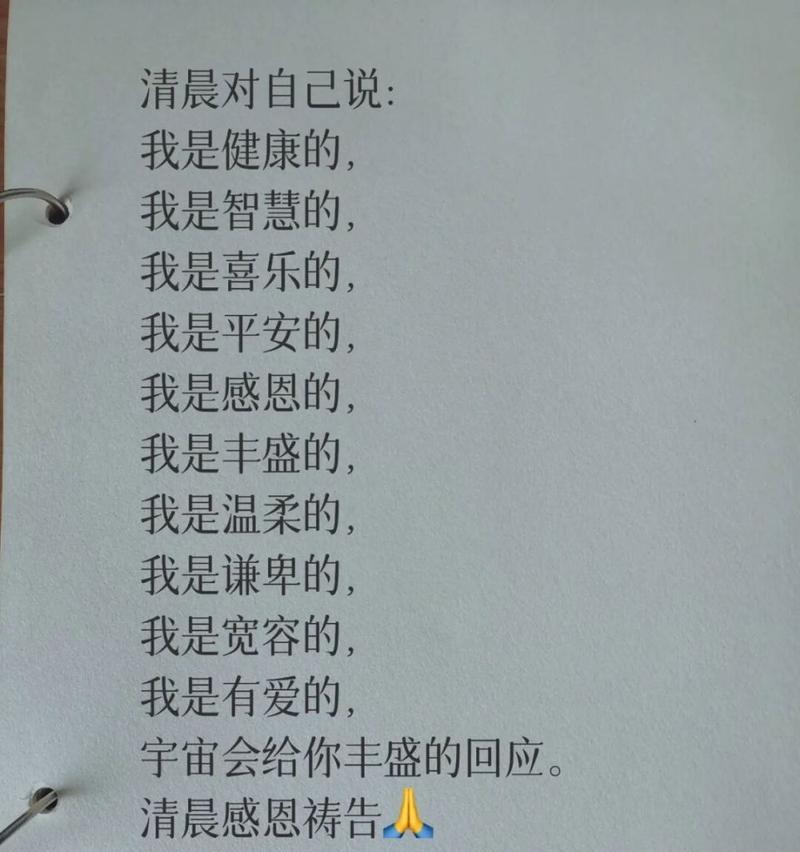 清晨对自己说:
我是健康的,
我是智慧的,
我是喜乐的,
我是平安的,
我是感恩的,
我是丰盛的,
我是温柔的,
我是谦卑的,
我是宽容的,
我是有爱的,
宇宙会给你丰盛的回应。
清晨感恩祷告🙏